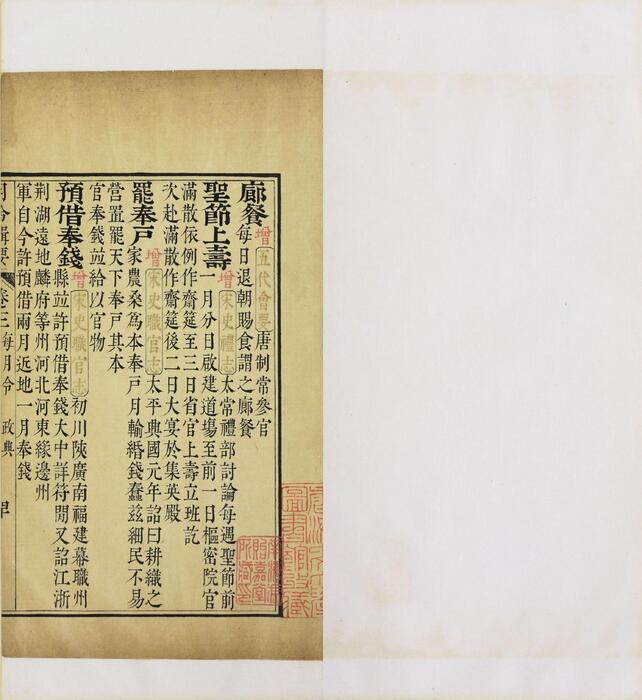 廊餐增五代會要唐制常參官
每日退朝賜食謂之廊餐
聖節上壽增宋史禮志太常禮部討論每遇聖節前
一月分日啟建道場至前一日樞密院官
滿散依例作齋筵至三日省官上壽立班訖
次赴滿散作齋筵後二日大宴於集英殿
罷奉戶增宋史職官志太平興國元年詔曰耕織之
家農桑爲本奉戶月輸緡錢蠢茲細民不易
營置罷天下奉戶其本
官奉錢並給以官物
預借奉錢增宋史職官志初川陝廣南福建幕職州
縣並許預借奉錢大中祥符閒又詔江浙
荊湖遠地麟府等州河北河東緣邊州
軍自今許預借兩月近地一月奉錢
月令輯要 卷三 每月令 政典